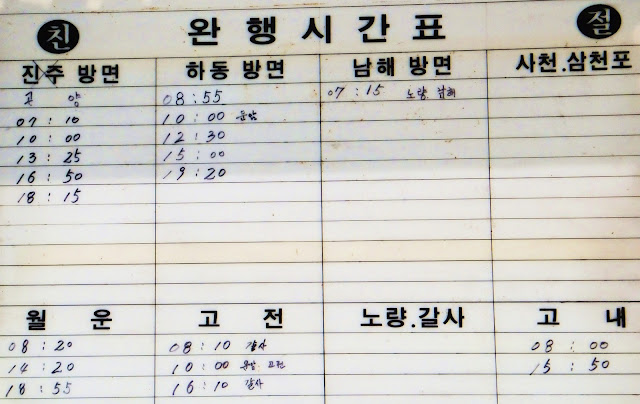 친 완행시간표 절
진주 방면 하동 방면 남해 방면 사천.삼천포
곤 양 08:55 07:15 노량.남해
07:10 10:00
10:00 12:30
13:25 15:00
16:50 19:20
18:15
월 운 고 전 노량.갈사 고 내
08:20 08:10 갈사 08:00
14:20 10:00 고전 15:50
18:55 16:10 갈사